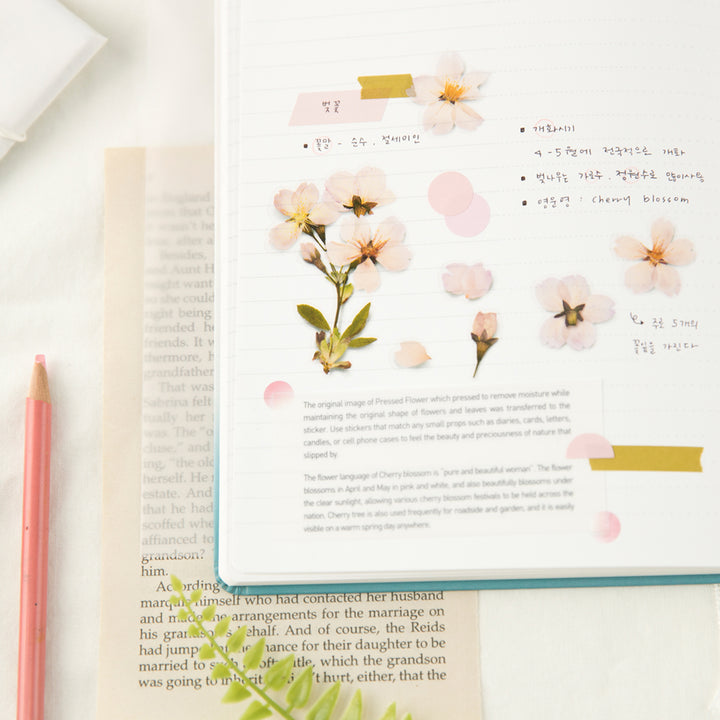 벚꽃
▪ 꽃말 - 순수, 절세미인
▪ 개화시기
4-5월에 전국적으로 개화
▪ 벚나무는 가로수, 정원수로 많이사용
▪ 영문명 : cherry blossom
주로 5개의
꽃잎을 가진다
The original image of Pressed Flower which pressed to remove moisture while
maintaining the original shape of flowers and leaves was transferred to the
sticker. Use stickers that match any small props such as diaries, cards, letters,
candles, or cell phone cases to feel the beauty and preciousness of nature that
slipped by.
The flower language of Cherry blossom is "pure and beautiful woman" The flower
blossoms in April and May in pink and white, and also beautifully blossoms under
the clear sunlight, allowing various cherry blossom festivals to be held across the
nation. Cherry tree is also used frequently for roadside and garden, and it is easily
visible on a warm spring day anywhere.
in England
was that C
wasn't her
true, after a
Besides,
and Aunt H
might want
so she could
might being
friended he
friends. It w
thermore, h
grandfather
That was
Sabrina felt
tually her
was. The "o
cuse," and
ing, "the old
herself. He
estate. And
that he had
scoffed when
affianced to
grandson?
him.
According who had contacted her husband
and made arrangements for the marriage on
his grandson's behalf. And of course, the Reids
had jumped at the chance for their daughter to be
married to such a lofty title, which the grandson
was going to inherit. didn't hurt, either, that the